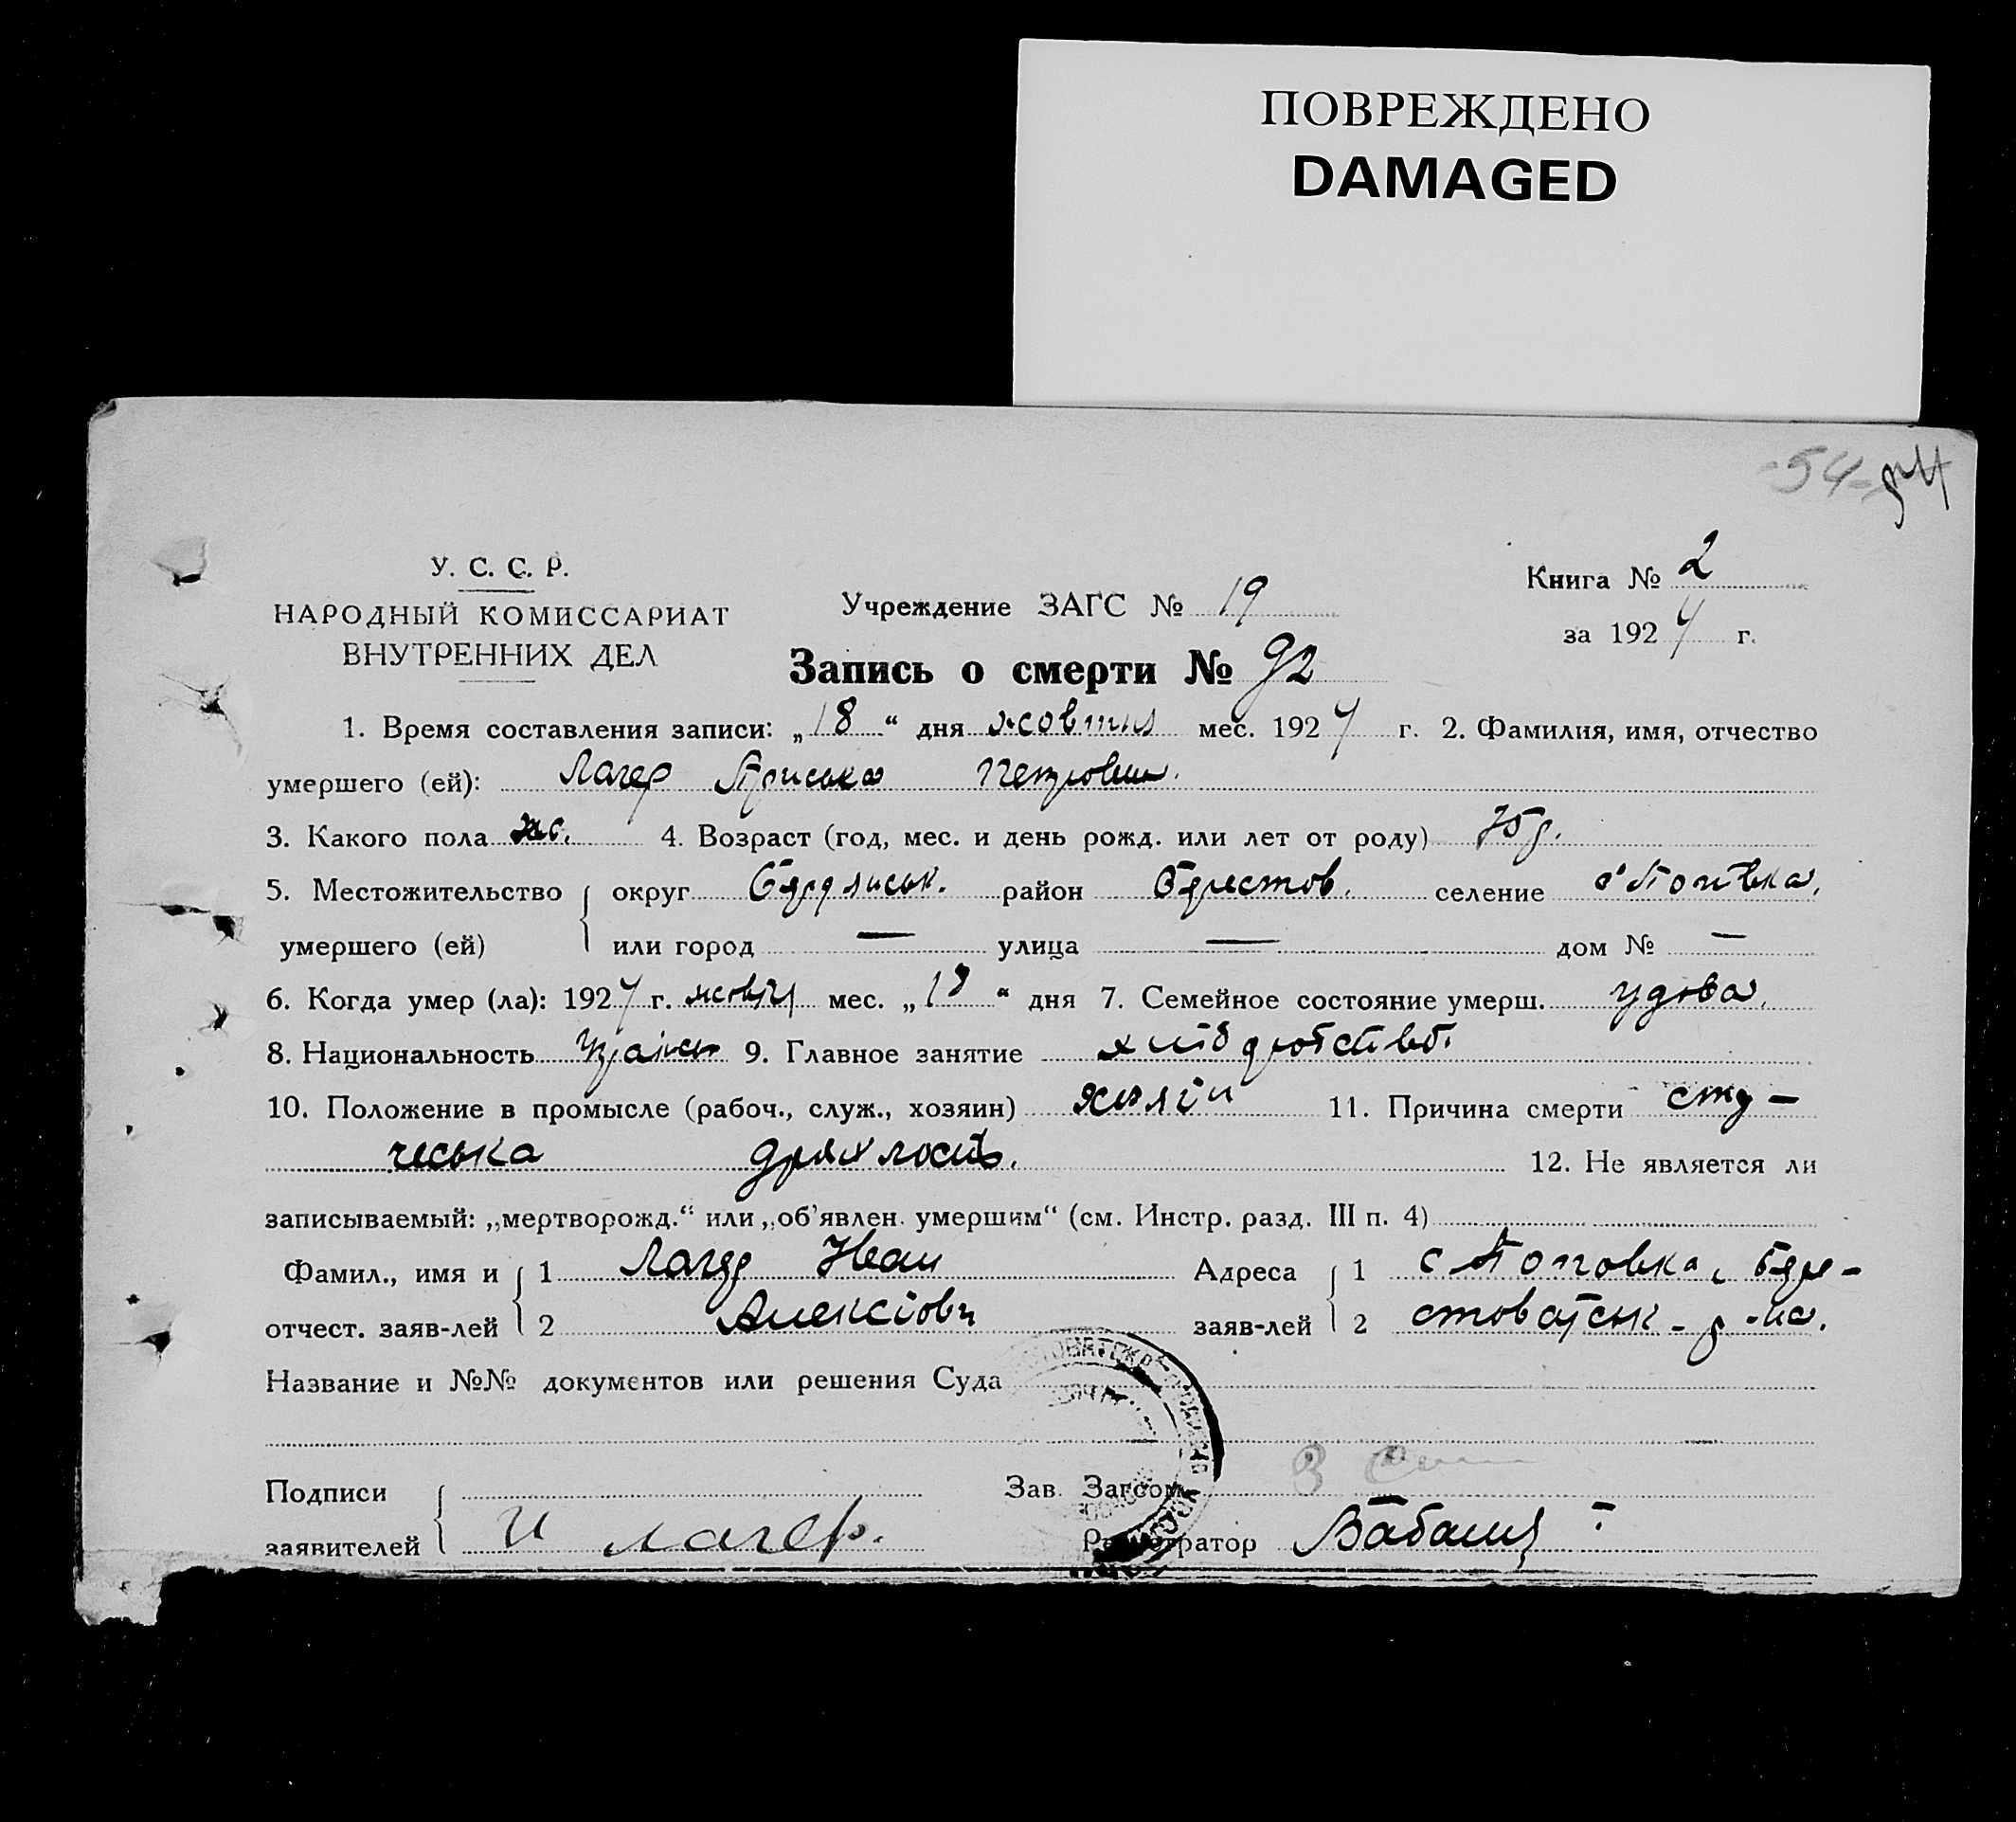 ПОВРЕЖДЕНО
DAMAGED
54
У. С. С. Р.
НАРОДНЫЙ КОМИССАРИАТ
ВНУТРЕННИХ ДЕЛ
Учреждение ЗАГС № 19
Книга № 2
за 1924 г.
Запись о смерти № 92
1. Время составления записи: „18“ дня жовтня мес. 1924 г. 2. Фамилия, имя, отчество
умершего (ей): Лагер Пріська Петровна.
3. Какого пола ж. 4. Возраст (год, мес. и день рожд. или лет от роду) 75 р.
5. Местожительство округ Бердянськ. район Берестов. селение с. Попівка,
умершего (ей) или город — улица — дом № —
6. Когда умер (ла): 1924 г. жовтн мес. „18“ дня 7. Семейное состояние умерш. удова.
8. Национальность 9. Главное занятие хліборобство.
10. Положение в промысле (рабоч., служ., хозяин) хазяїн 11. Причина смерти
дряхлость. 12. Не является ли
записываемый: „мертворожд.“ или „об’явлен. умершим“ (см. Инстр. разд. III п. 4)
Фамил., имя и 1 Лагер Иван Адреса 1 с. Поповка, Бере-
отчест. заяв-лей 2 Алексіович заяв-лей 2 стоватськ - р -на.
Название и №№ документов или решения Суда
Подписи Зав. Загсом
заявителей И Лагер. Регистратор